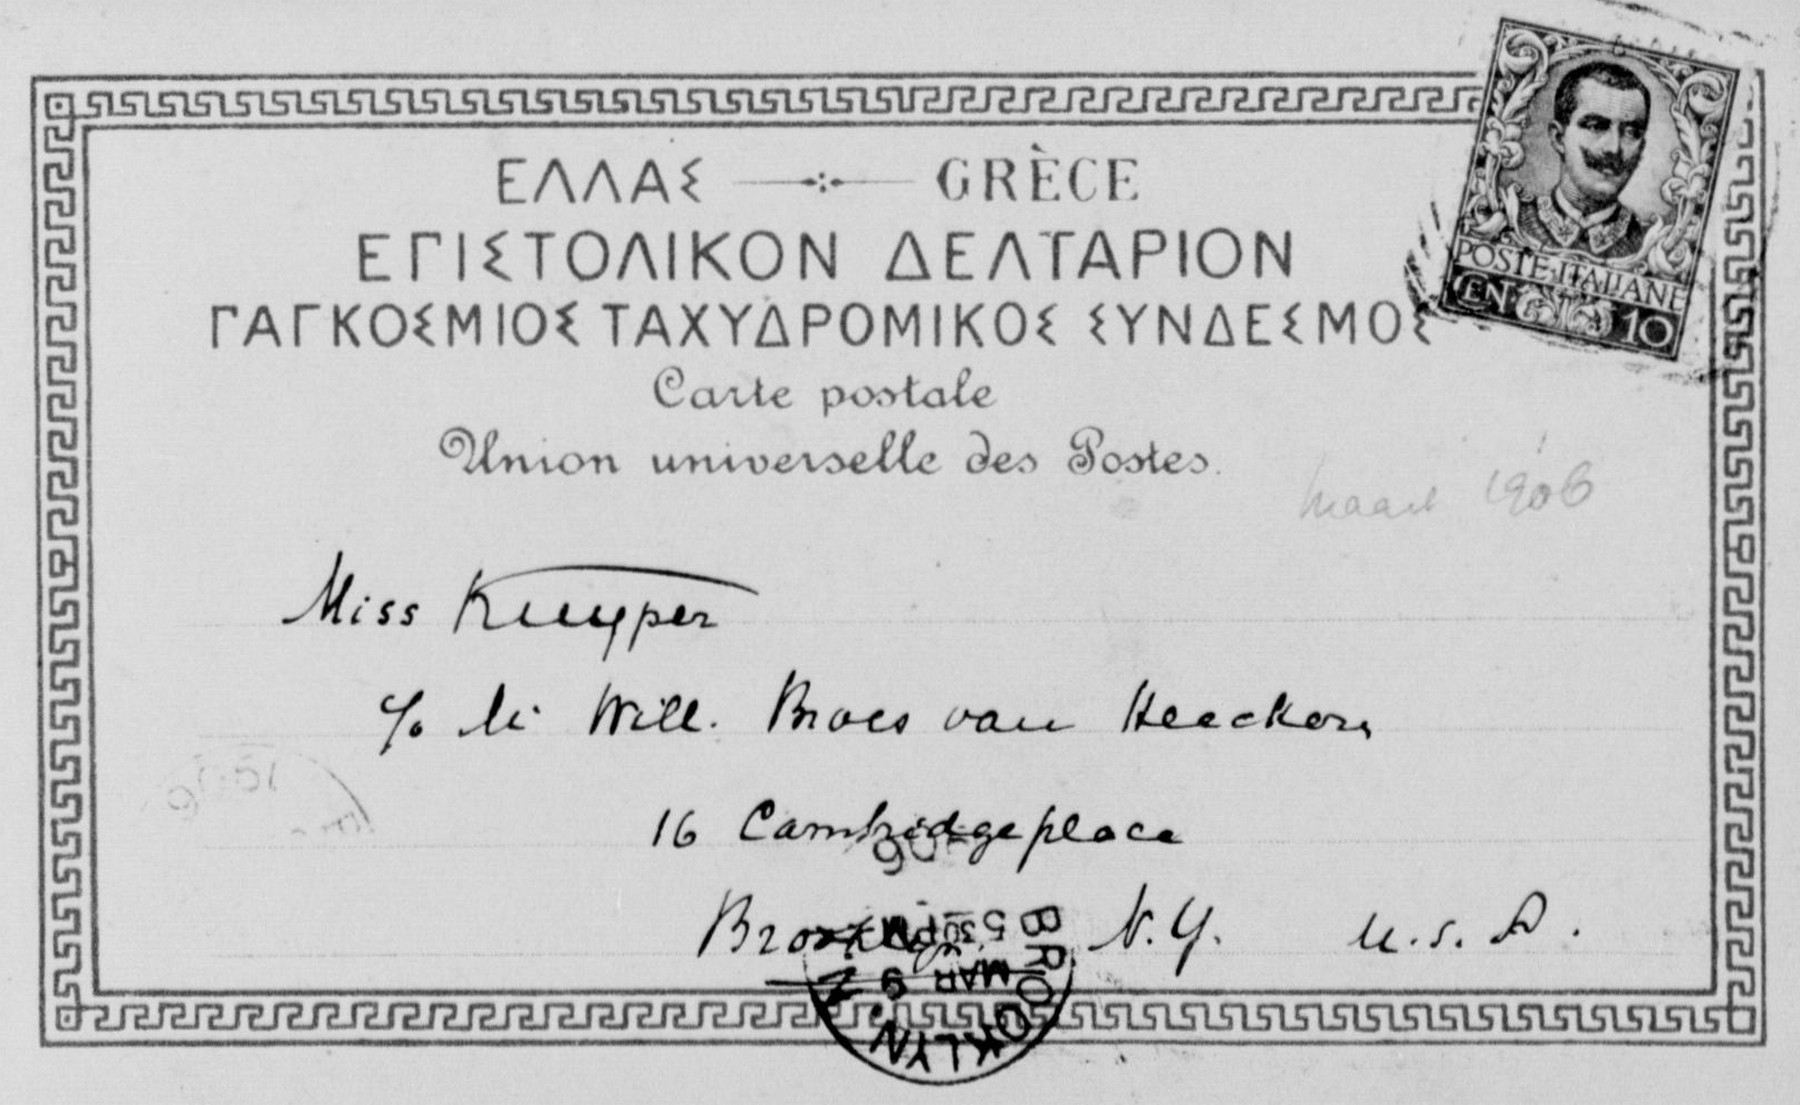 ΕΛΛΑΣ GRÈCE
ΕΓΙΣΤΟΛΙΚΟΝ ΔΕΛΤΑΡΙΟΝ
ΓΑΓΚΟΣΜΙΟΣ ΤΑΧΥΔΡΟΜΙΚΟΣ ΣΥΝΔΕΣΜΟΣ
Carte postale
Union universelle des Postes.
POSTE ITALIANE
CEN. 10
maart 1906
Miss Kuyper
c/o Mr Will. Broes van Heeckeren
16 Cambridgeplace
Brooklyn. N.Y. U.S.A.
BROOKLYN, N.
MAR 9
5 30 PM
1906